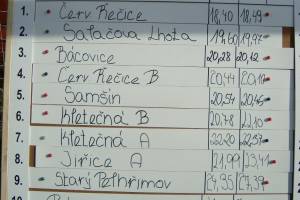 1. Červ Řečice 18,40 18,49
2. Salačova Lhota 19,60 19,47
3. Bácovice 20,28 20,12
4. Červ Řečice B 20,44
5. Samšín 20,54 20,45
6. Kletečná B 20,78 22,10
7. Kletečná A 22,20 22,37
8. Jiřice A 21,99 23,41
9. Starý Pelhřimov 27,35 27,39